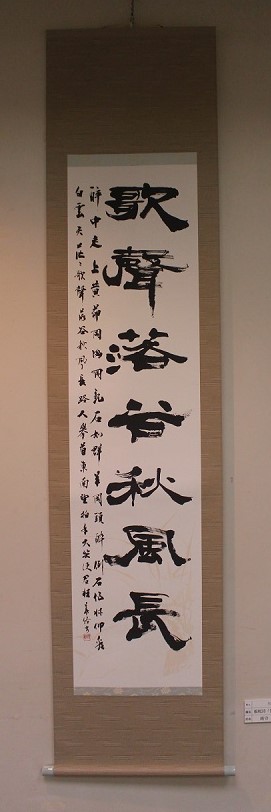 歌聲落谷秋風長
醉中走上黄茅岡滿岡亂石如群羊岡頭醉倒石作牀仰看
白雲天茫々歌聲落谷秋風長路人舉首東南望拍手大笑使君狂